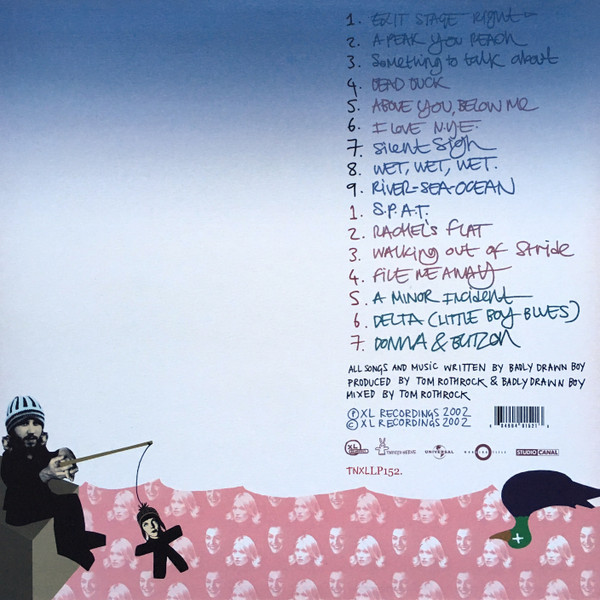 1. EXIT STAGE Right
2. A PEAK YOU REACH
3. Something to talk about
4. DEAD DUCK
5. ABOVE YOU, BELOW ME
6. I LOVE N.Y.E.
7. Silent Sigh
8. WET, WET, WET.
9. RIVER-SEA-OCEAN
1. S.P.A.T.
2. RACHEL'S FLAT
3. WALKING OUT OF Stride
4. FILE ME AWAY
5. A MINOR Incident
6. DELTA (LITTLE BOY BLUES)
7. DONNA & BLITZON
ALL SONGS AND MUSIC WRITTEN BY BADLY DRAWN BOY
PRODUCED BY TOM ROTHROCK & BADLY DRAWN BOY
MIXED BY TOM ROTHROCK
Ⓟ XL RECORDINGS 2002
© XL RECORDINGS 2002
XL
UNIVERSAL
STUDIO CANAL
TNXLLP152.